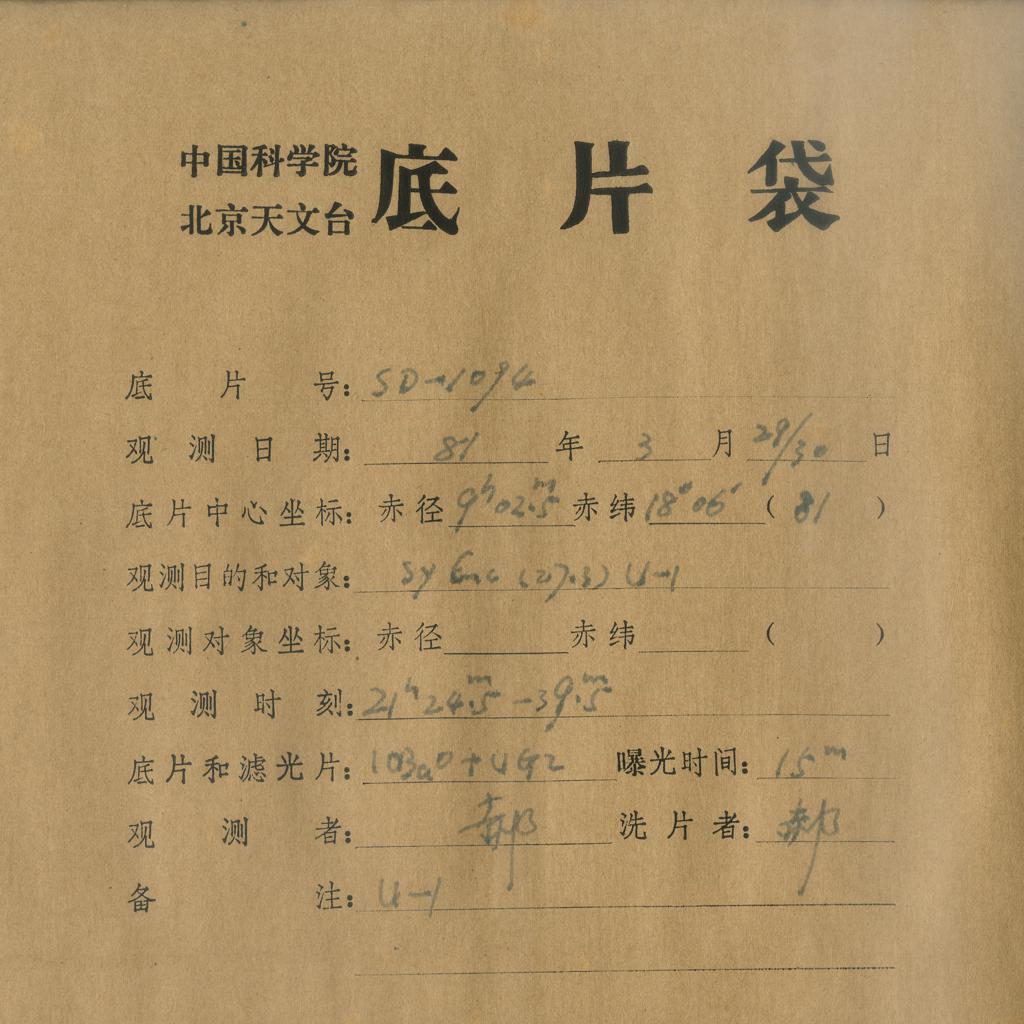 中国科学院
北京天文台
底片袋
底片号：SD-1094
观测日期：81年3月29/30日
底片中心坐标：赤径9ʰ02ᵐ.5赤纬18°06′（81）
观测目的和对象：SY (27.3) U-1
观测对象坐标：赤径 赤纬 （ ）
观测时刻：21ʰ24ᵐ.5-39ᵐ.5
底片和滤光片：103aO+UG2 曝光时间：15ᵐ
观测者：郝 洗片者：郝
备注：U-1